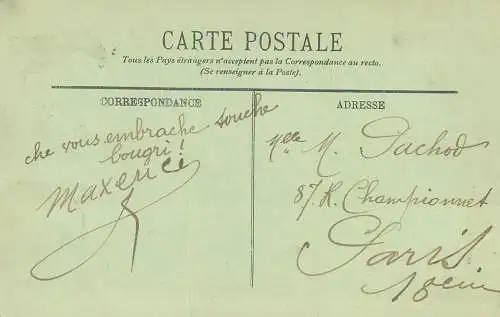 CARTE POSTALE
Tous les Pays étrangers n'acceptent pas la Correspondance au recto.
(Se renseigner à la Poste).
CORRESPONDANCE
che vous embrache souche
bougri!
Maxence
ADRESSE
Melle M. Pachod
87. R. Championnet
Paris
18eme